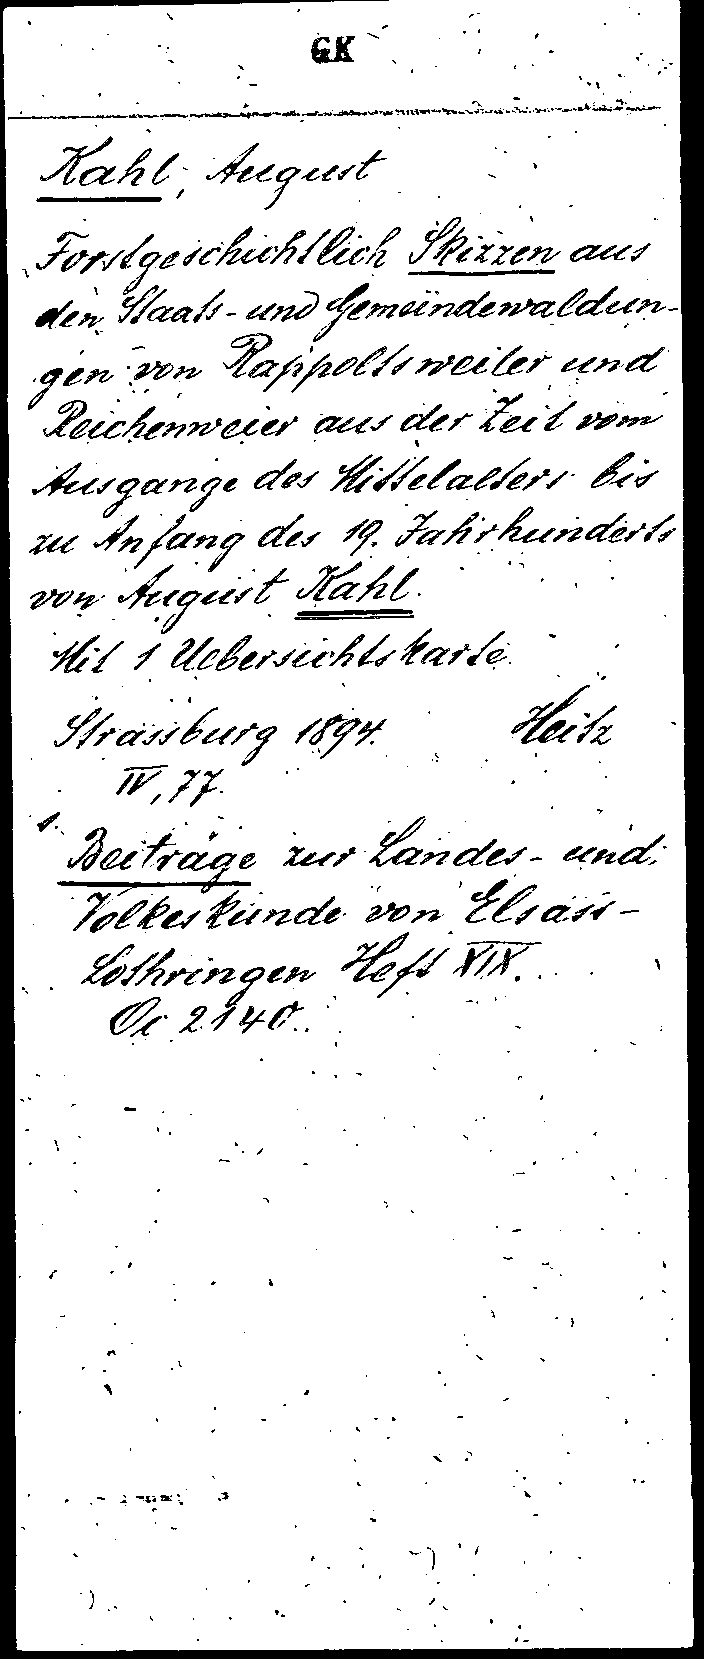 GK
Kahl, August
Forstgeschichtlich Skizzen aus
den Staats- und Gemeindewaldun-
gen von Rappoltsweiler und
Reichenweier aus der Zeit vom
Ausgange des Mittelalters bis
zu Anfang des 19. Jahrhunderts
von August Kahl.
Mit 1 Uebersichtskarte.
Strassburg 1894. Heitz
IV, 77.
s.
Beiträge zur Landes- und
Volkeskunde von Elsass-
Lothringen Heft XIX.
Oc 2140.